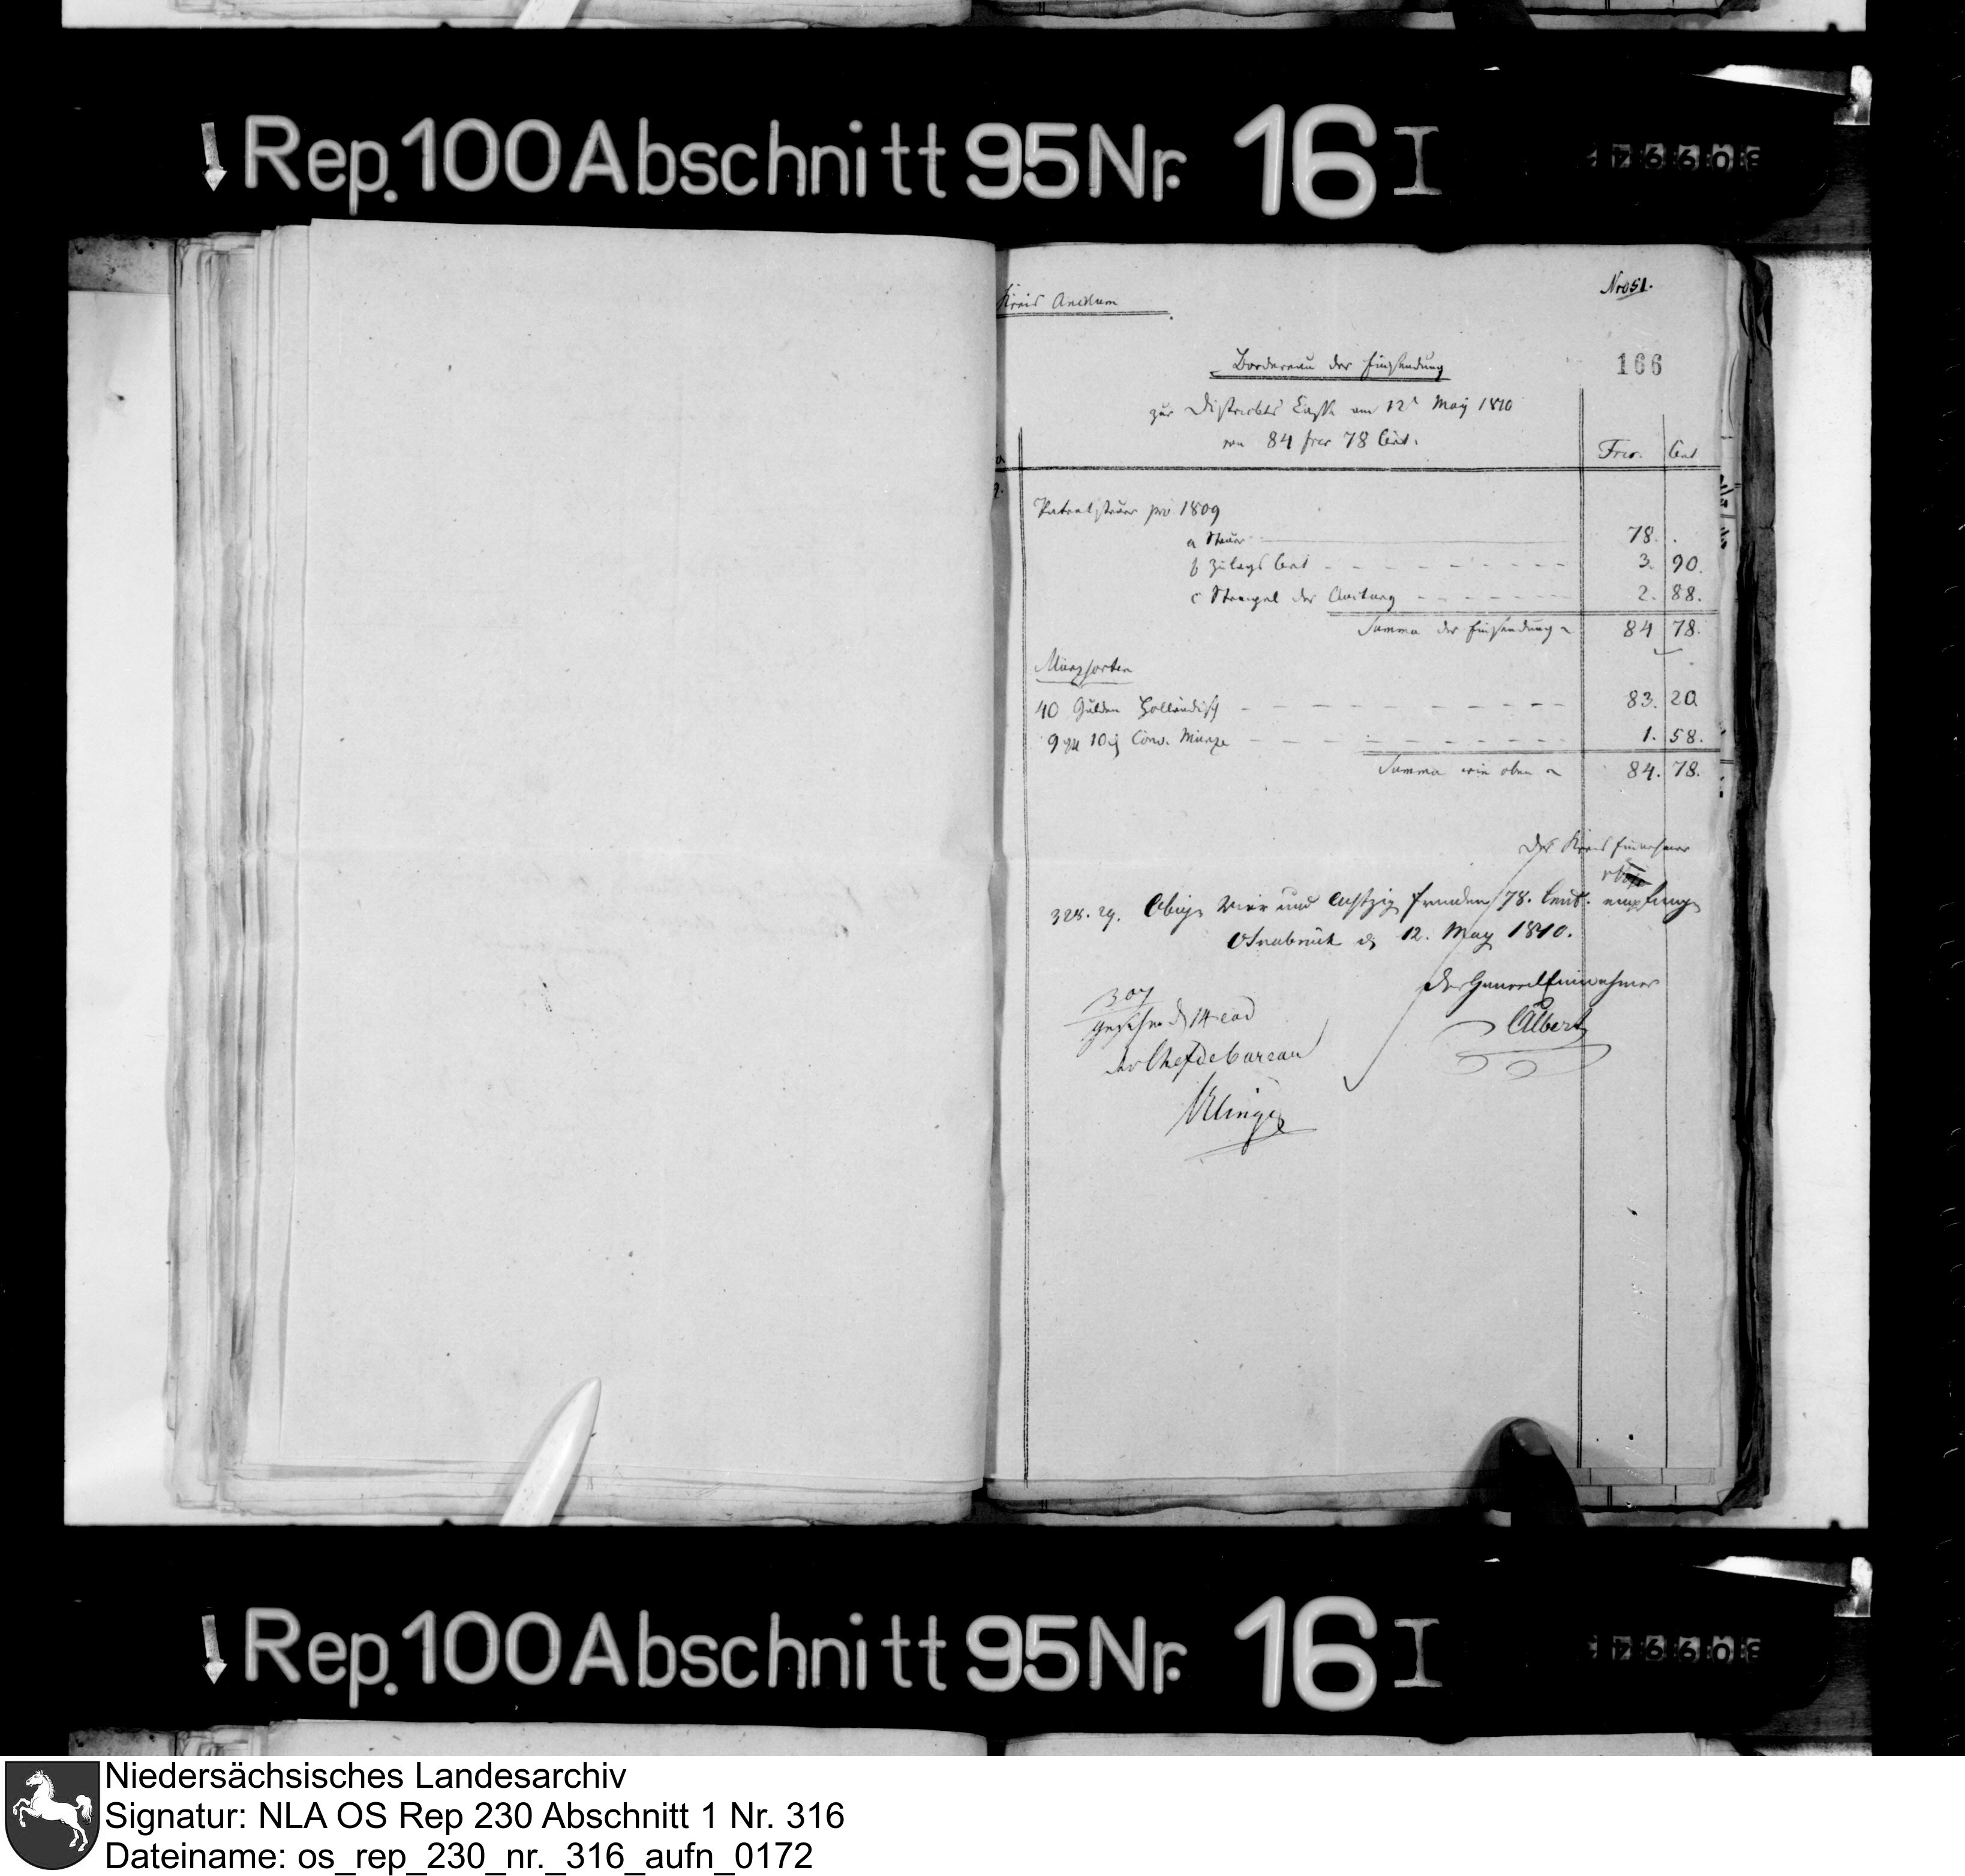 Rep. 100 Abschnitt 95 Nr. 16 I
Kreis Ancum
Nro 51.
166
Bordereau der Einsendung
zur Districts Casse am 12t May 1810
von 84 frcs 78 Cent.
Frcs. Cent
Patentsteuer pro 1809
a Steuer 78. .
b Zulags Cent 3. 90.
c Stempel der Quitung 2. 88.
Summa der Einsendung 84 78.
Münzsorten
40 Gulden Holländisch 83. 20
9 ggr 10 d Conv. Münze 1. 58.
Summa wie oben 84. 78.
Der Kreis Einnehmer
328. 29. Obige Vier und Achtzig Franken 78. Cent. empfing
Osnabrück d 12. May 1810.
Der General Einnehmer
Albert
307
Gesehen d 14 eod
der Chef de bureau
Klinge
Rep. 100 Abschnitt 95 Nr. 16 I
Niedersächsisches Landesarchiv
Signatur: NLA OS Rep 230 Abschnitt 1 Nr. 316
Dateiname: os_rep_230_nr._316_aufn_0172